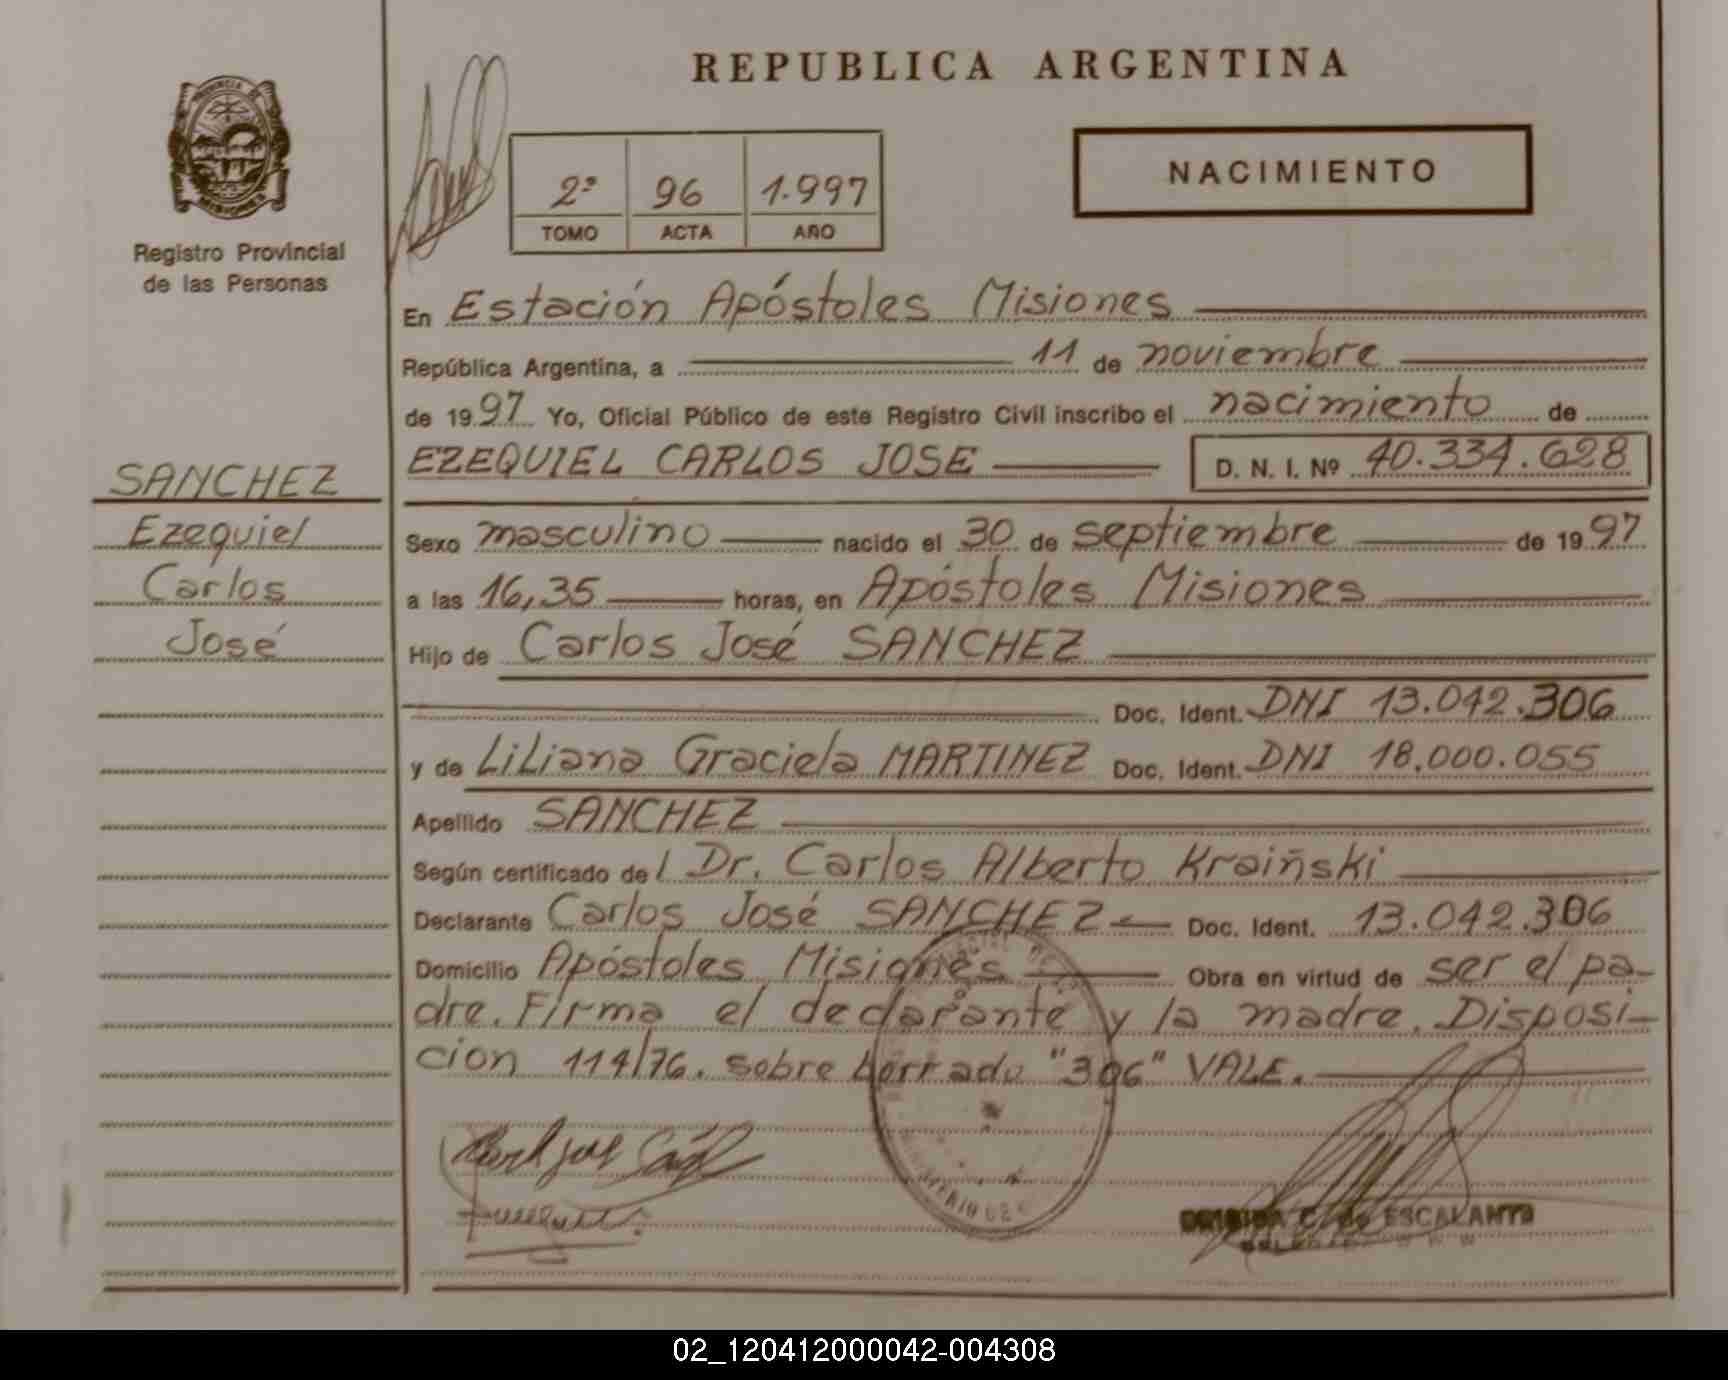 REPUBLICA ARGENTINA
PROVINCIA DE
MISIONES
Registro Provincial
de las Personas
2º 96 1.997
TOMO ACTA AÑO
NACIMIENTO
En Estación Apóstoles Misiones
República Argentina, a 11 de noviembre
de 1997 Yo, Oficial Público de este Registro Civil inscribo el nacimiento de
EZEQUIEL CARLOS JOSE D. N. I. Nº 40.334.628
SANCHEZ
Ezequiel
Carlos
José
Sexo masculino nacido el 30 de septiembre de 1997
a las 16,35 horas, en Apóstoles Misiones
Hijo de Carlos José SANCHEZ
Doc. Ident. DNI 13.042.306
y de Liliana Graciela MARTINEZ Doc. Ident. DNI 18.000.055
Apellido SANCHEZ
Según certificado del Dr. Carlos Alberto Kraiñski
Declarante Carlos José SANCHEZ Doc. Ident. 13.042.306
Domicilio Apóstoles Misiones Obra en virtud de ser el pa-
dre. Firma el declarante y la madre. Disposi-
cion 114/76. sobre borrado "306" VALE.
C. de ESCALANTE
02_120412000042-004308